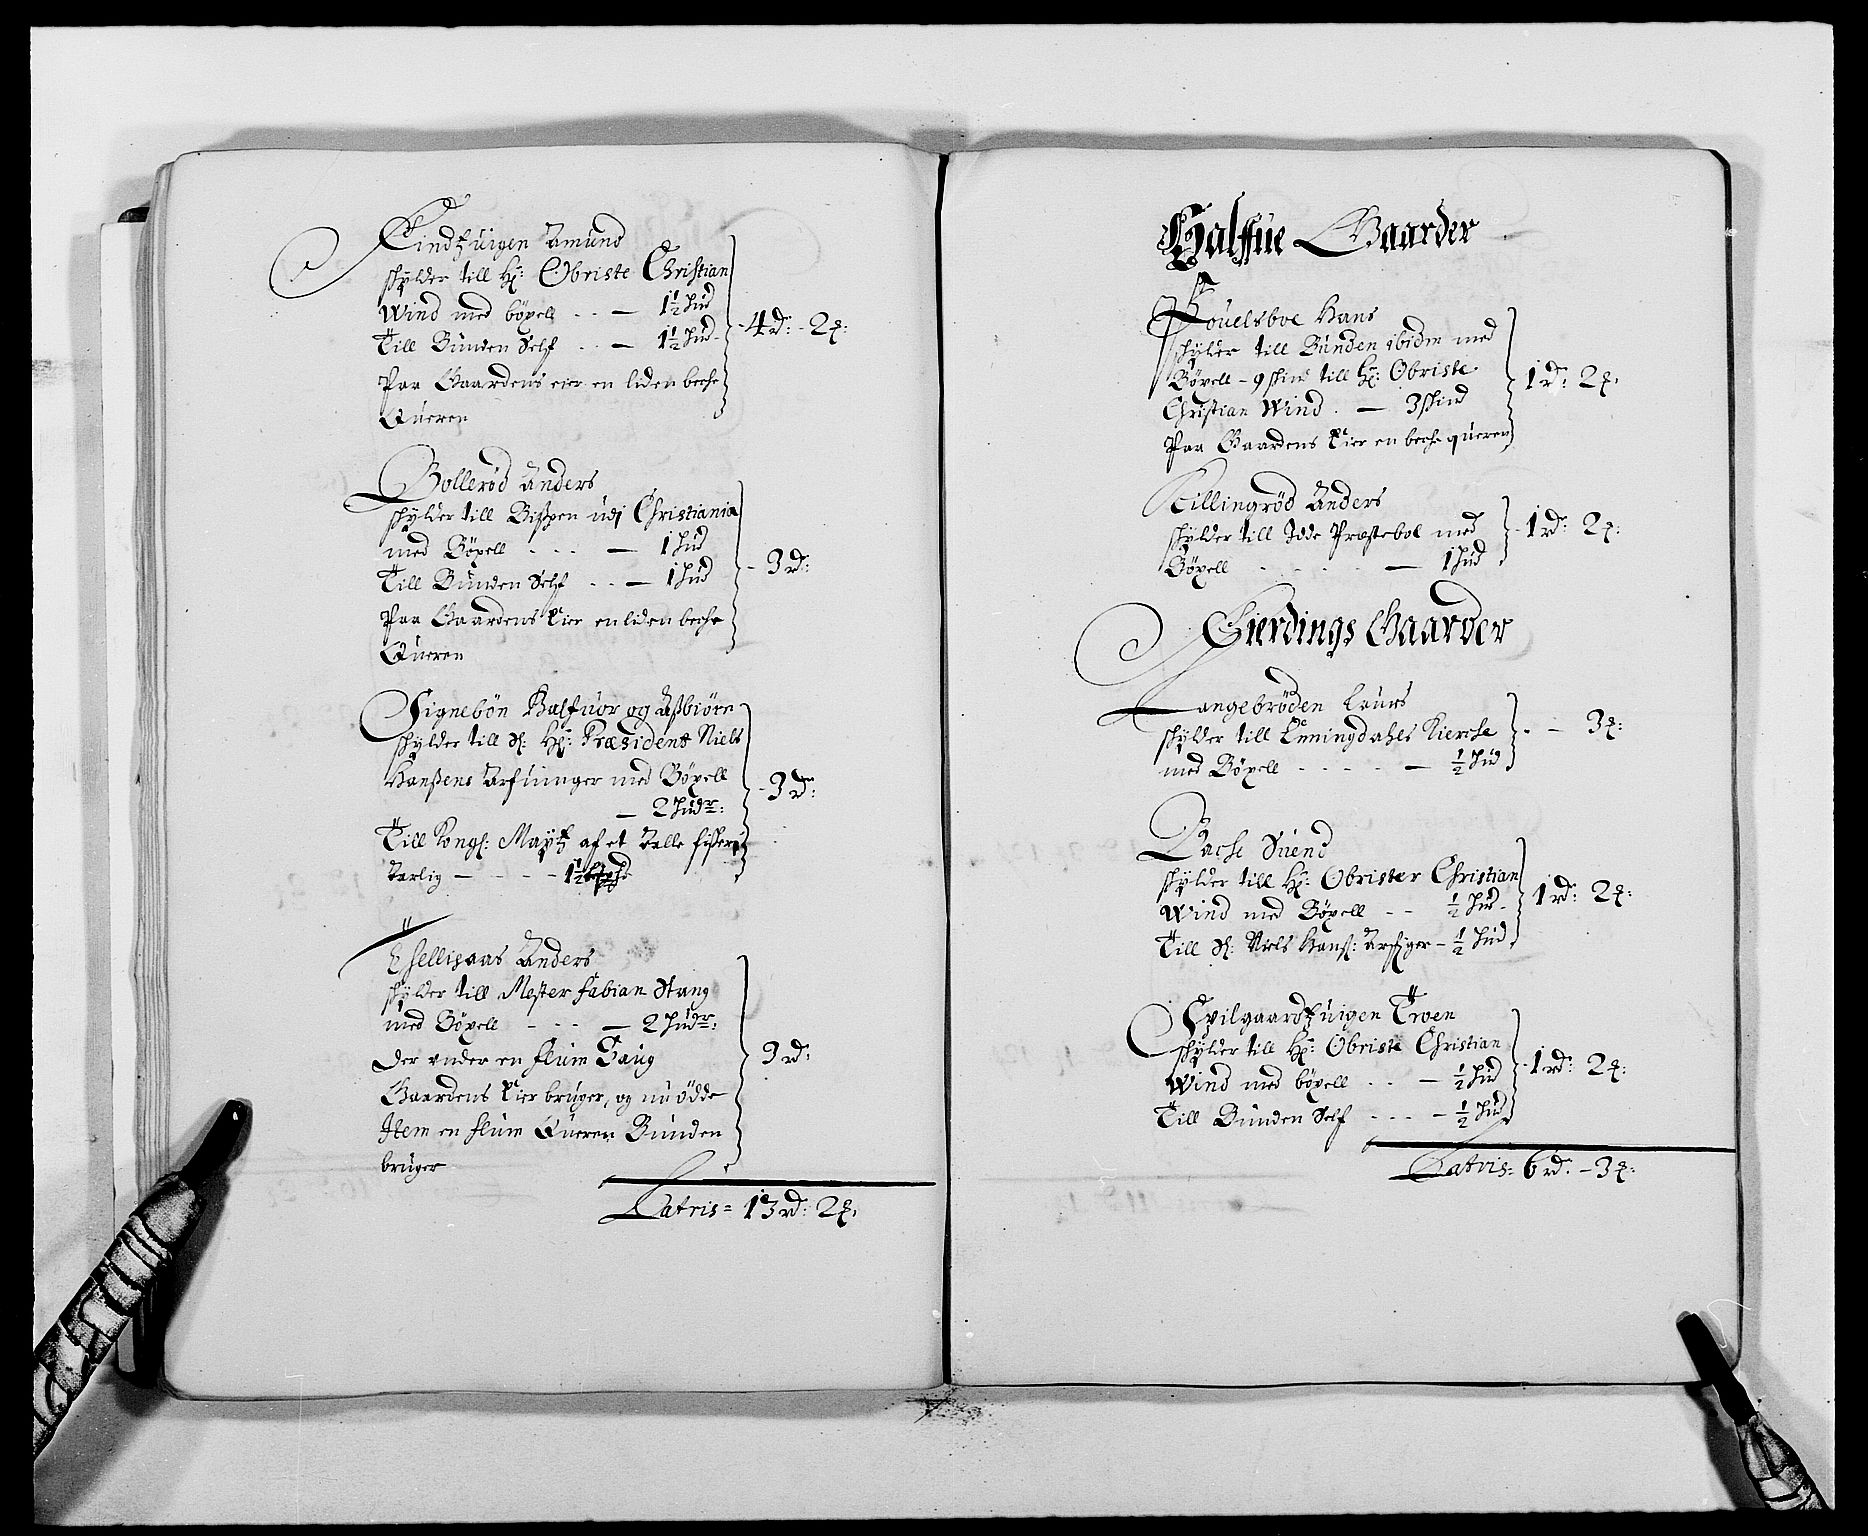 Lindtzuigen Amund
schylder till Hr: Obriste Christian
Wind med böxell . . — 1½ Hud
Till Bunden Self . . — 1½ Hud
4 rd: - 2 ꝗ:
Paa Gaardens eier en liden beche
Queren
Bollerød Anders
schylder till Bißpen udj Christiania
med Böxell - - - — 1 Hud
Till Bunden Self . . — 1 Hud
3 rd:
Paa Gaardens Eier en liden beche
Queren
Signebön Halfuor og Aßbiörn
schylder till Sl: Hr: Præsident Niels
Hanßens Arfuinger med Böxell
— 2 Hudr:
3 rd:
Till Kongl: Maytz af et Aalle fischeri
Aarlig - - - -
Anders
schylder till Mester Fabian Stang
med Böxell - - - — 2 Hudr:
Der under en flum Saug
3 rd:
Gaardens Eier bruger, og nu ödde
Item en flum Queren Bunden
bruger
Latris = 13 rd: 2 ꝗ:
Halffue Gaarder
Houelsboe Hans
schylder till Bunden ibidm med
Böxell - 9 skind till Hr: Obriste
Christian Wind . — 3 skind
1 rd: 2 ꝗ:
Paa Gaardens Eier en beche queren
Killingrød Anders
schylder till Idde Præsteboe med
Böxell - - - - — 1 Hud
1 rd: 2 ꝗ:
Fierdings Gaarder
Langebröden Laurs
schylder till Enningdahls Kierche
med Böxell - - - - — ½ Hud
- — 3 ꝗ:
Bache Suend
schylder till Hr: Obrister Christian
Wind med Böxell - - ½ Hud
Till Sl: Niels Hanß: Arfinger - ½ Hud
1 rd: 2 ꝗ:
Spilgaardtzuigen Troen
schylder till Hr: Obriste Christian
Wind med böxell . . — ½ Hud
Till Bunden Self - - - - ½ Hud
1 rd: 2 ꝗ:
Latris = 6 rd: - 3 ꝗ: